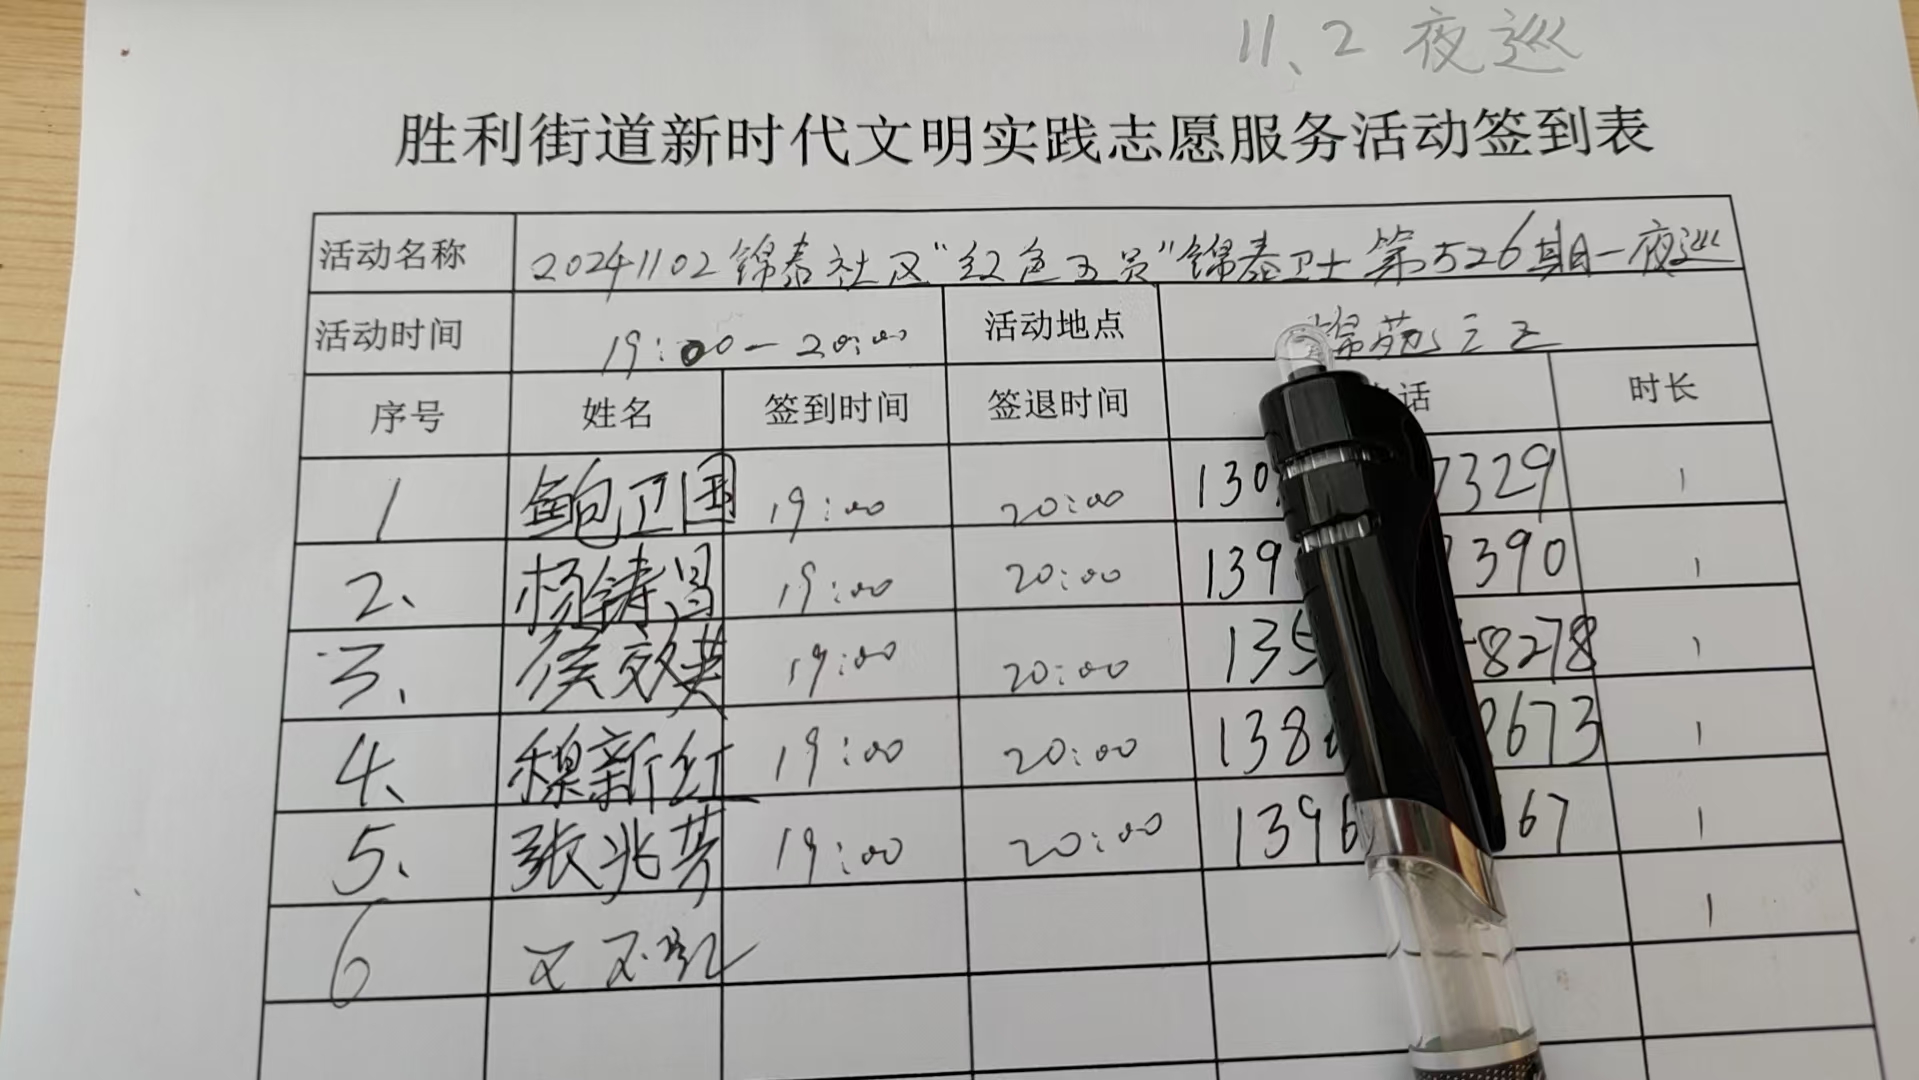 11、2 夜巡
胜利街道新时代文明实践志愿服务活动签到表
活动名称 20241102锦泰社区"红色五员"锦泰卫士第526期一夜巡
活动时间 19:00-20:00 活动地点 锦苑三区
序号 姓名 签到时间 签退时间 话 时长
1 鲍卫国 19:00 20:00 130 7329 1
2、 杨铸昌 19:00 20:00 139 2390 1
3、 侯效英 19:00 20:00 135 8278 1
4、 穆新红 19:00 20:00 138 2673 1
5、 张兆芳 19:00 20:00 1396 67 1
6 1